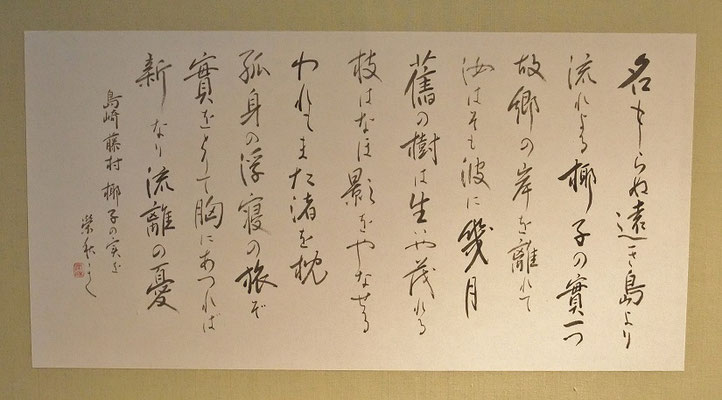 名もしらぬ遠き島より
流れよる椰子の實一つ
故郷の岸を離れて
汝はそも波に幾月
舊の樹は生や茂れる
枝はなほ影をやなせる
われもまた渚を枕
孤身の浮寝の旅ぞ
實をとりて胸にあつれば
新なり流離の憂
島崎藤村 椰子の実を
栄秋かく